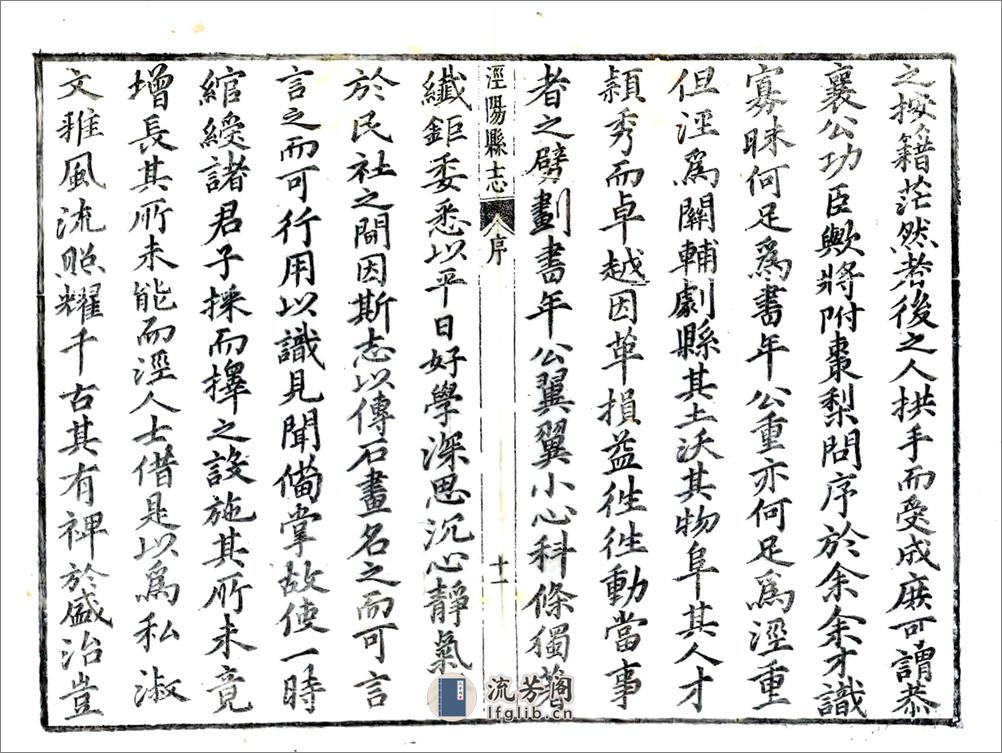 之按籍茫然者後之人拱手而受成庶可謂恭
襄公功臣歟將附棗梨問序於余余才識
寡昧何足爲書年公重亦何足爲涇重
但涇爲關輔劇縣其土沃其物阜其人才
穎秀而卓越因革損益徃徃動當事
者之劈劃書年公翼翼小心科條獨
涇陽縣志 序 十一
纖鉅委悉以平日好學深思沉心靜氣
於民社之間因斯志以傳石畫名之而可言
言之而可行用以識見聞備掌故使一時
綰綬諸君子採而擇之設施其所未竟
增長其所未能而涇人士借是以爲私淑
文雅風流照耀千古其有裨於盛治豈
流芳阁
lfglib.cn